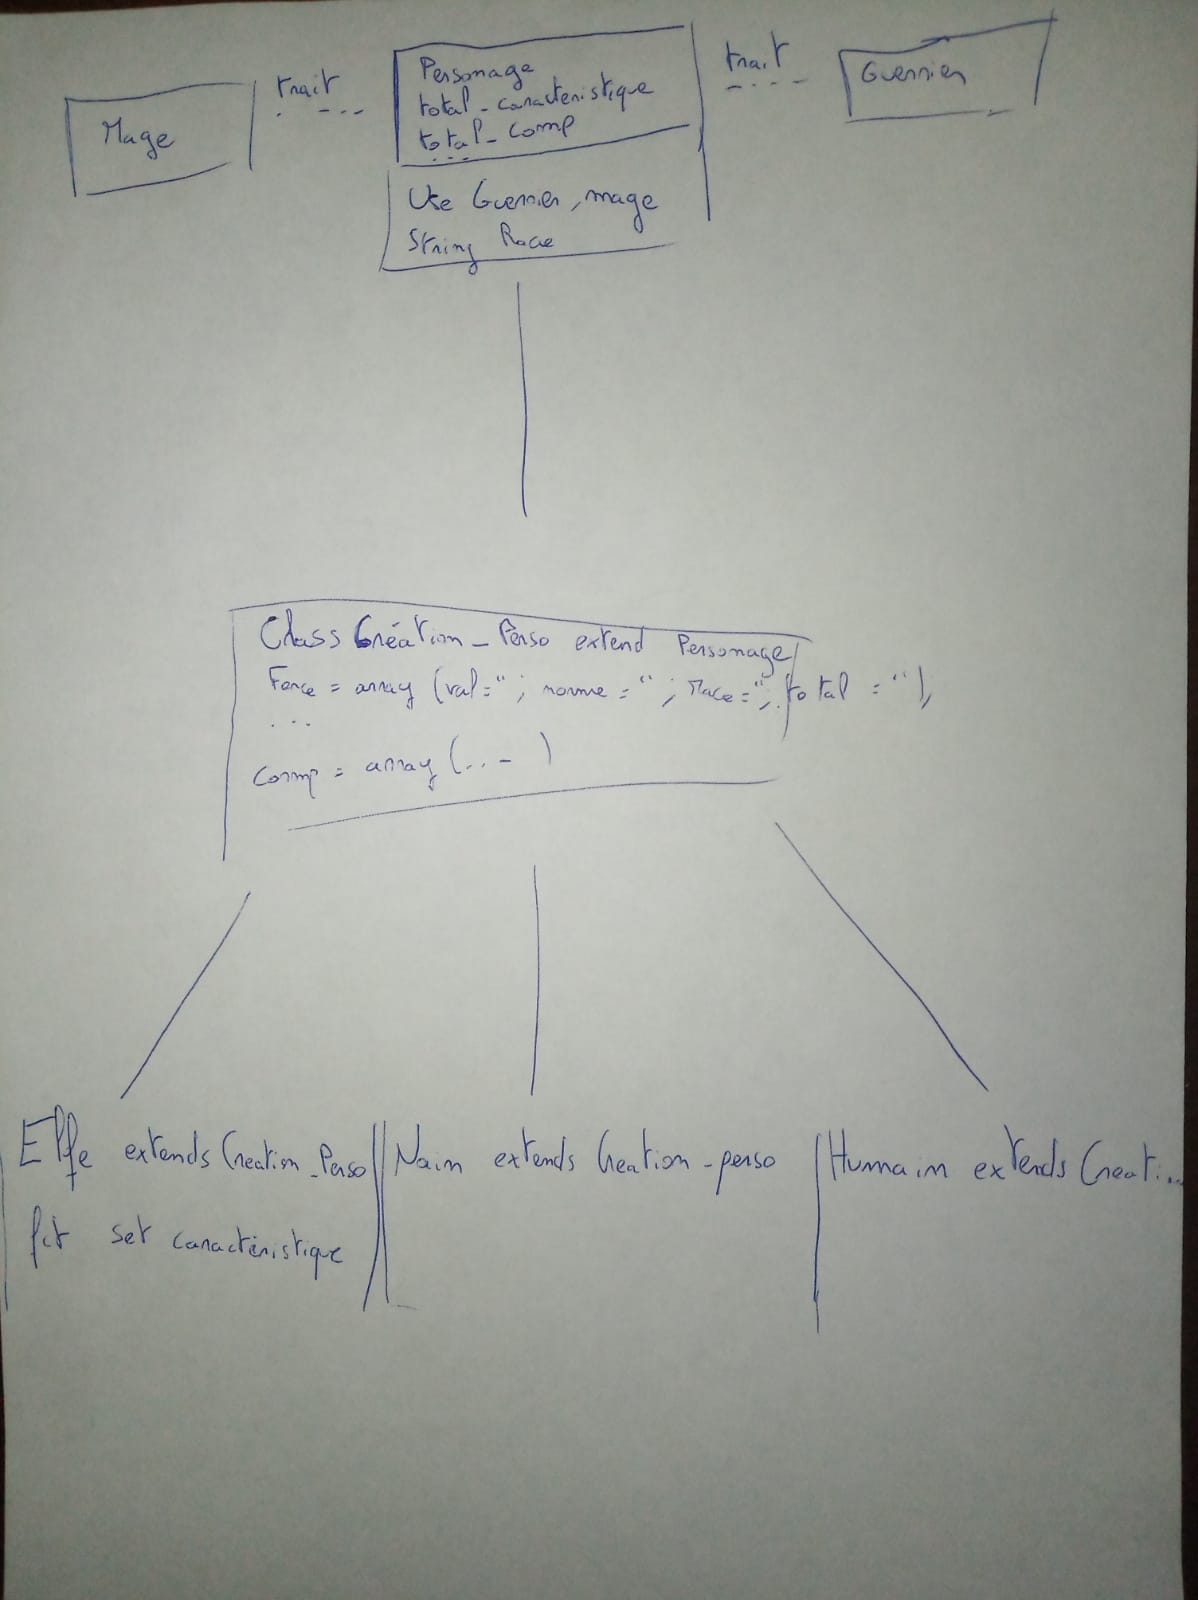 Mage
trait
Personage
total_caracteristique
total_comp
...
Use Guerrier, mage
String Race
trait
Guerrier
Class Création_Perso extend Personage
Force = array (val=" ; norme = " ; Race=", total = " ),
...
Comp = array (... )
Elfe extends Creation_Perso
fct set caractéristique
Nain extends Creation_perso
Humain extends Creat...